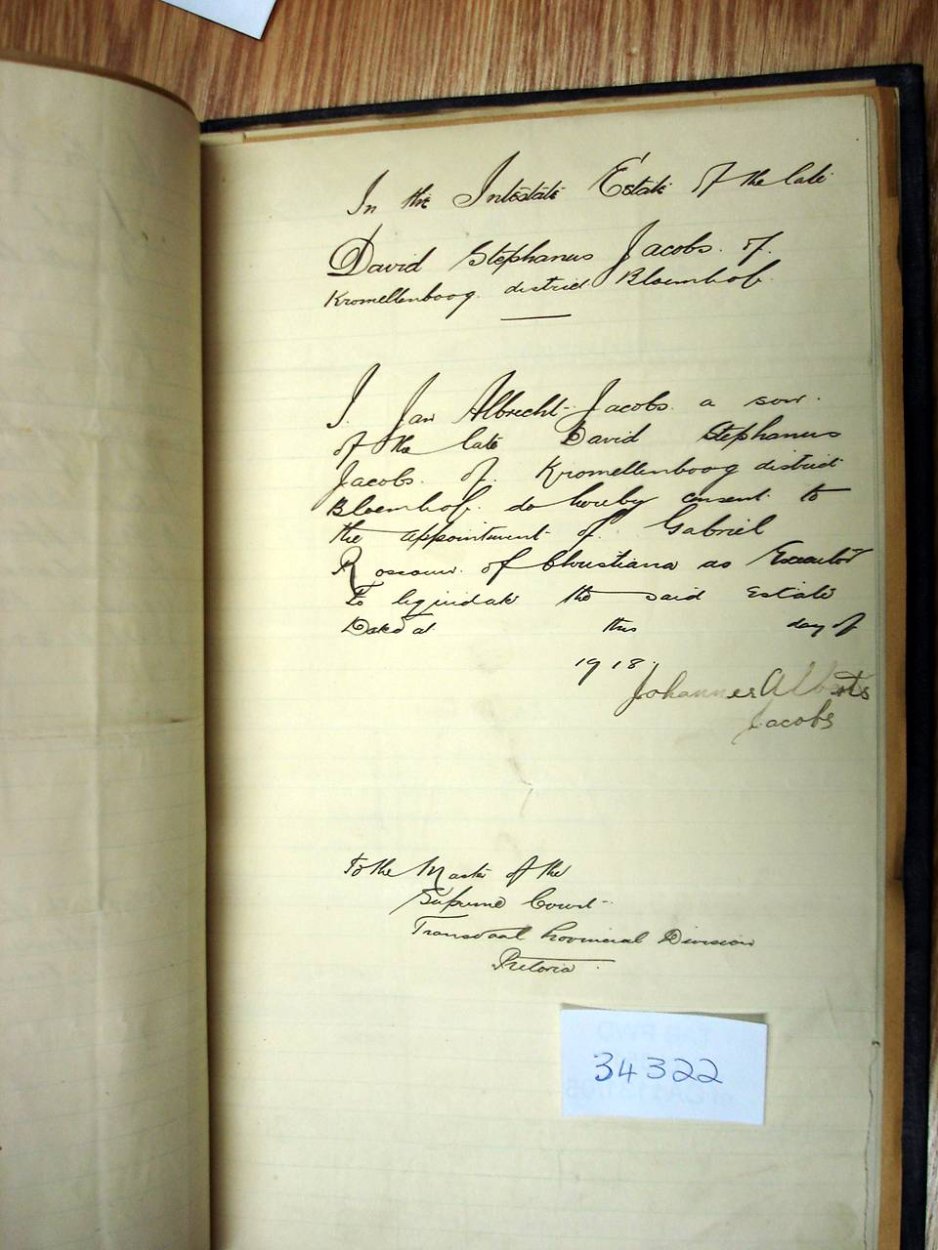 In the Intestate Estate of the late
David Stephanus Jacobs of
Kromellenboog district Bloemhof
I Jan Albrecht Jacobs a son
of the late David Stephanus
Jacobs of Kromellenboog district
Bloemhof do hereby consent to
the appointment of Gabriel
of Christiana as Executor
to liquidate the said Estate
Dated at this day of
1918.
Johannes Alberts
Jacobs
To the Master of the
Supreme Court
Transvaal Provincial Division
Pretoria
34322